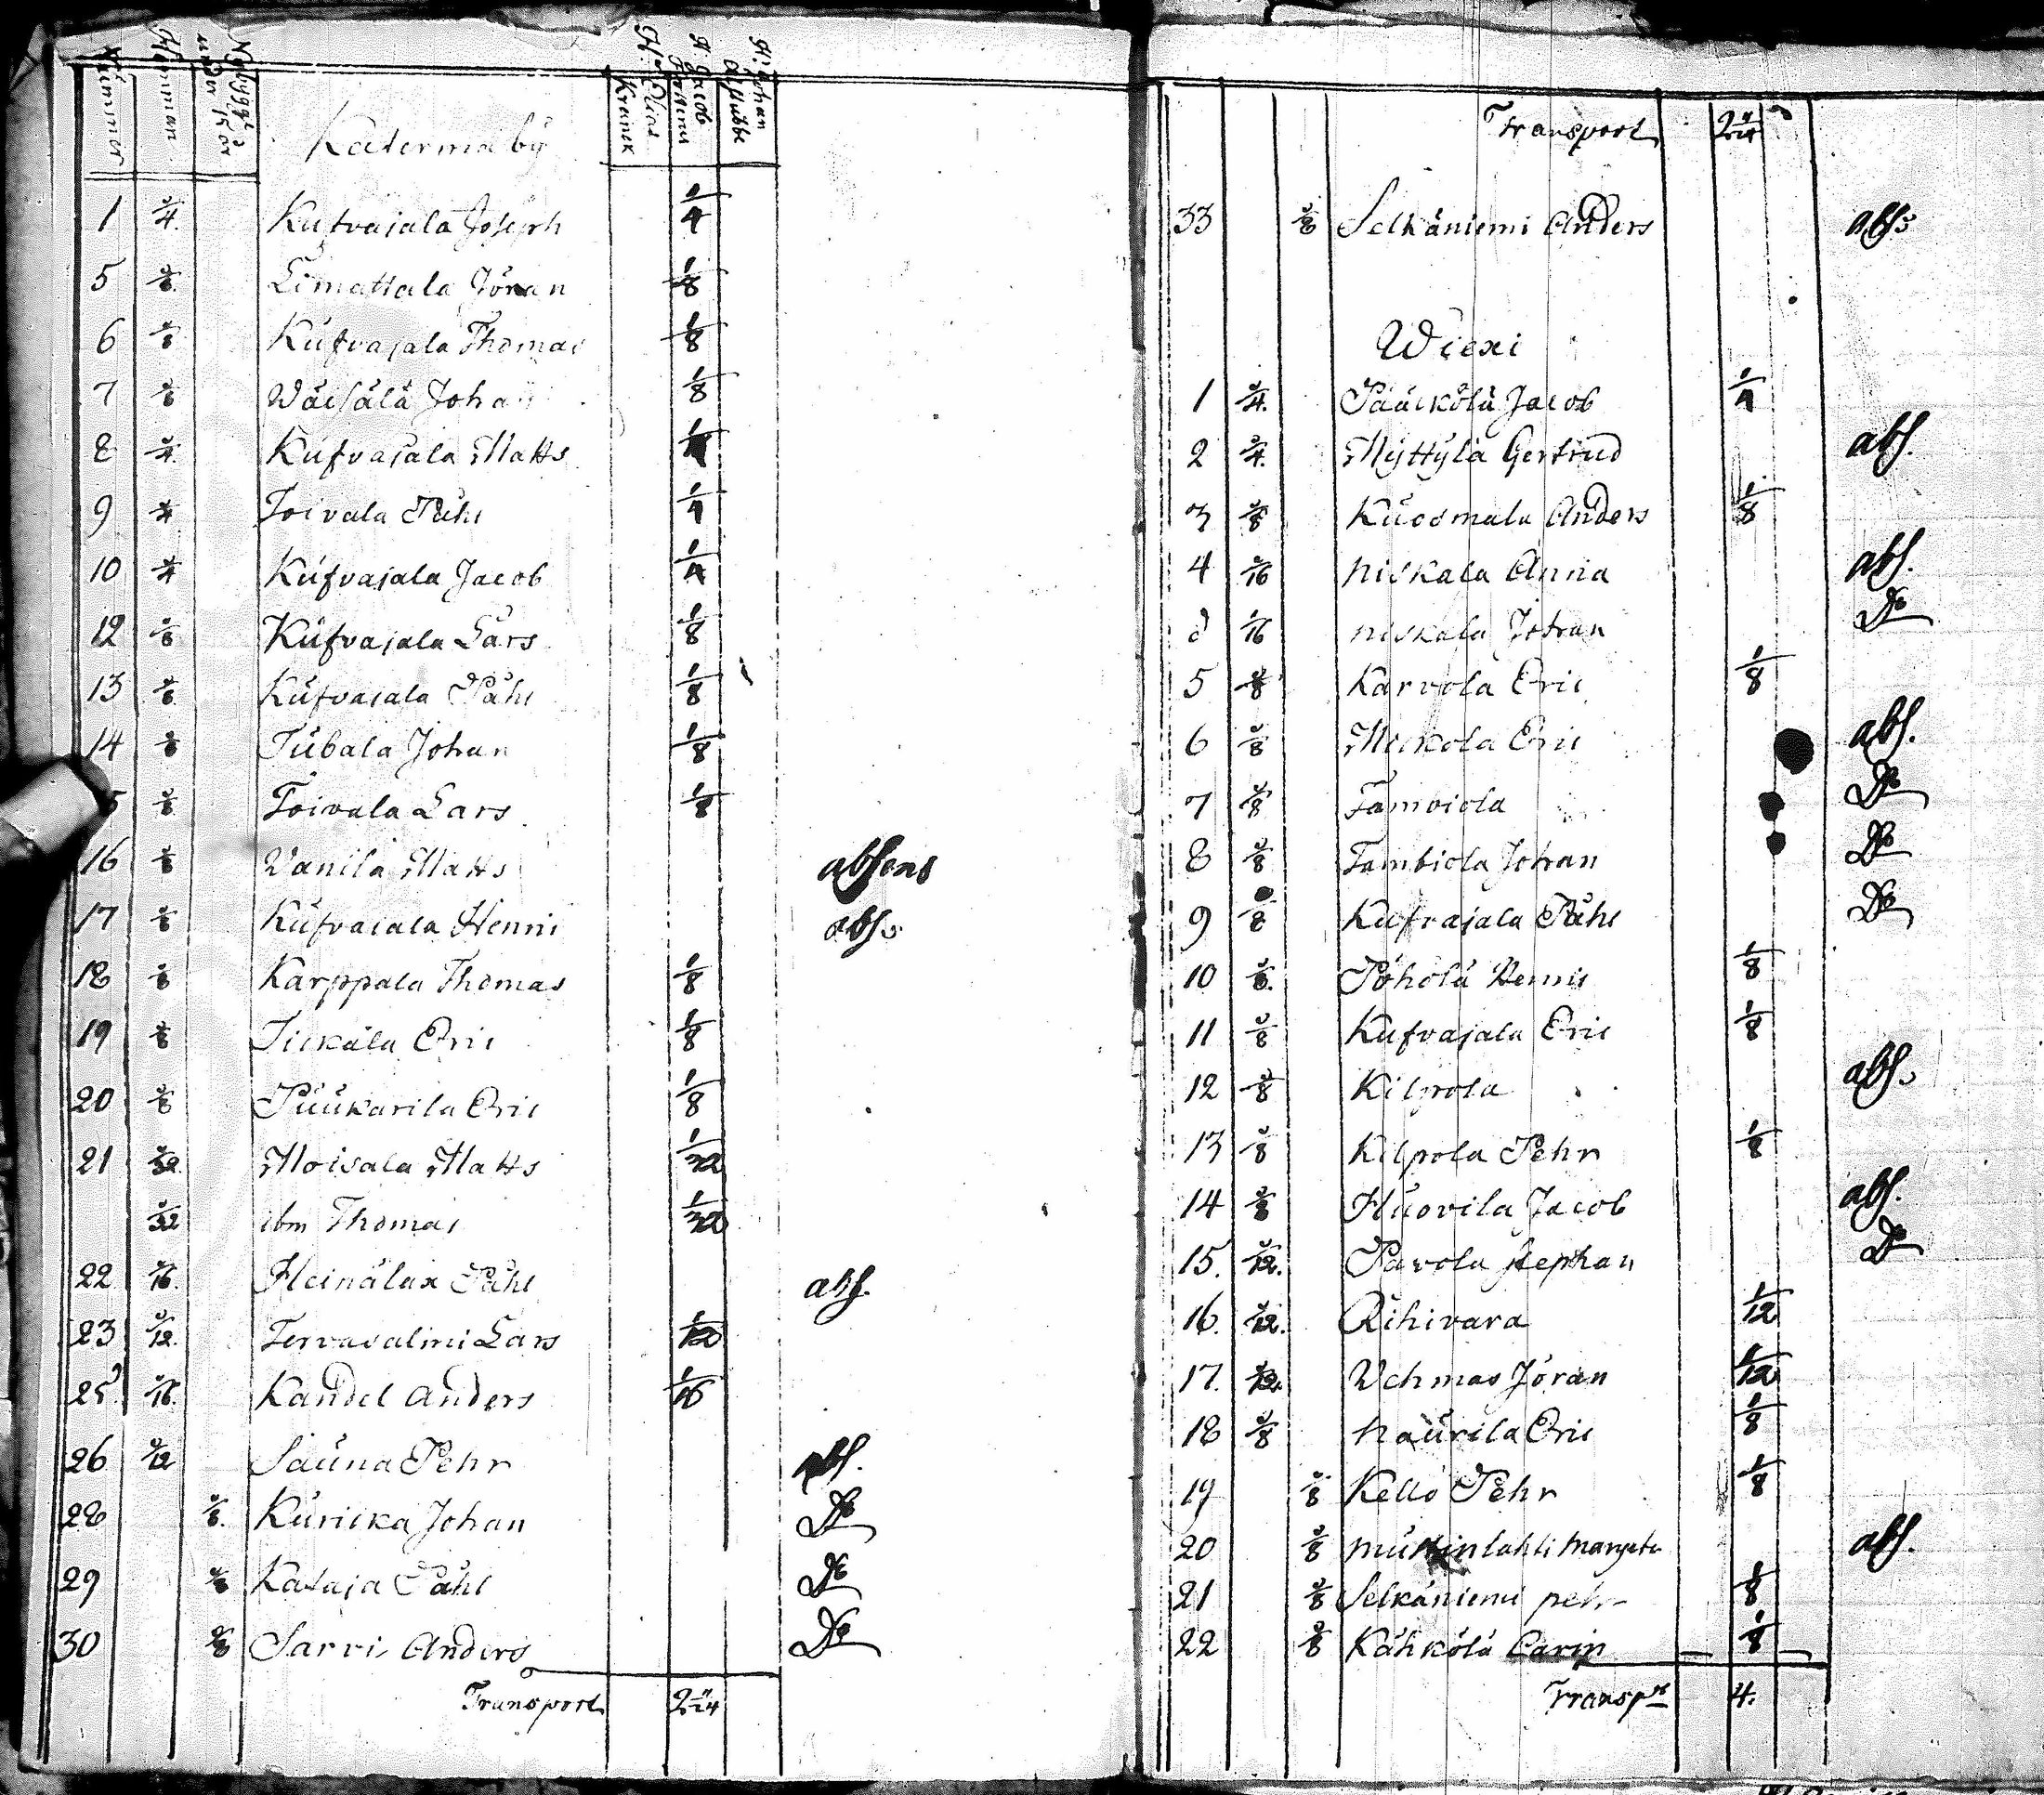 Nummer Hemman Nybygge under 15 år Katerma by H. Elias Kranck H. Jacob H. Johan
1 1/4. Kufvajala Joseph 1/4
5 1/8. Limattala Jöran 1/8
6 1/8 Kufvajala Thomas 1/8
7 1/8 Wäisälä Johan 1/8
8 1/4. Kufvajala Matts 1/4
9 1/4 Toivala Påhl 1/4
10 1/4 Kufvajala Jacob 1/4
12 1/8 Kufvajala Lars 1/8
13 1/8 Kufvajala Påhl 1/8
14 1/8 Tübala Johan 1/8
5 1/8 Toivala Lars 1/8
16 1/8 Vanila Matts absens
17 1/8 Kufvajala Henric abs.
18 1/8 Karppala Thomas 1/8
19 1/8 Tickälä Eric 1/8
20 1/8 Puukarila Eric 1/8
21 1/32. Moisala Matts 1/32
1/32 ibm Thomas 1/32
22 1/16. Heinälax Påhl abs.
23 1/12. Tervasalmi Lars 1/12
25 1/16. Kandel Anders 1/16
26 1/12 Sauna Pehr abs.
28 1/8. Kuricka Johan Do
29 1/8 Kataja Påhl Do
30 1/8 Sarvi Anders Do
Transport 2 1/24
Transport 2 1/24
33 1/8 Selkäniemi Anders abs.
Wiexi
1 1/4. Pääckölä Jacob 1/4
2 1/4. Myttylä Gertrud abs.
3 1/8 Kuosmala Anders 1/8
4 1/16 Niskala Anna abs.
d 1/16 Niskala Johan Do
5 1/8 Karvola Eric 1/8
6 1/8 Mickola Eric abs.
7 1/8 Tamviola Do
8 1/8 Tambiola Johan Do
9 1/8 Kufvajala Påhl Do
10 1/8. Pöhölä Henric 1/8
11 1/8 Kufvajala Eric 1/8
12 1/8 Kilpola abs.
13 1/8 Kilpola Pehr 1/8
14 1/8 Huovila Jacob abs.
15. 1/12. Pavola Stephan Do
16. 1/12. Rihivara 1/12
17. 1/12. Vehmas Jöran 1/12
18 1/8 Naurila Eric 1/8
19 1/8 Kello Pehr 1/8
20 1/8 Mustinlahti Margeta abs.
21 1/8 Selkäniemi Pehr 1/8
22 1/8 Kähkölä Carin 1/8
Transp:t 4.